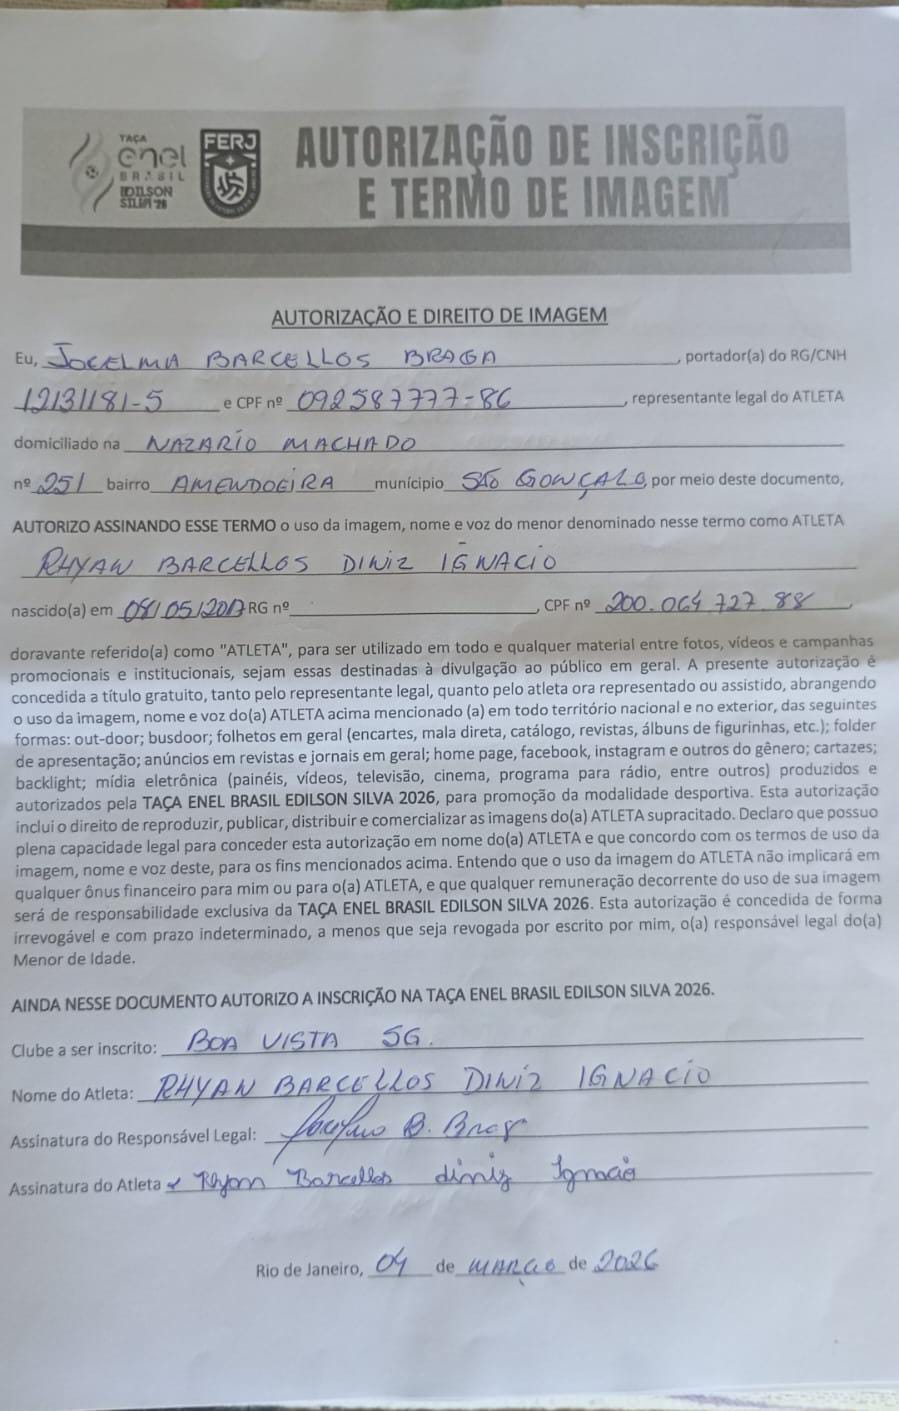 TAÇA
enel
BRASIL
EDILSON
SILVA '26
FERJ
AUTORIZAÇÃO DE INSCRIÇÃO
E TERMO DE IMAGEM
AUTORIZAÇÃO E DIREITO DE IMAGEM
Eu, JOCELMA BARCELLOS BRAGA, portador(a) do RG/CNH
12131181-5 e CPF nº 092587777-86, representante legal do ATLETA
domiciliado na NAZARIO MACHADO
nº 251 bairro AMENDOEIRA munícipio SÃO GONÇALO, por meio deste documento,
AUTORIZO ASSINANDO ESSE TERMO o uso da imagem, nome e voz do menor denominado nesse termo como ATLETA
RHYAN BARCELLOS DINIZ IGNACIO
nascido(a) em 08/05/2017 RG nº , CPF nº 200.064 727 88,
doravante referido(a) como "ATLETA", para ser utilizado em todo e qualquer material entre fotos, vídeos e campanhas
promocionais e institucionais, sejam essas destinadas à divulgação ao público em geral. A presente autorização é
concedida a título gratuito, tanto pelo representante legal, quanto pelo atleta ora representado ou assistido, abrangendo
o uso da imagem, nome e voz do(a) ATLETA acima mencionado (a) em todo território nacional e no exterior, das seguintes
formas: out-door; busdoor; folhetos em geral (encartes, mala direta, catálogo, revistas, álbuns de figurinhas, etc.); folder
de apresentação; anúncios em revistas e jornais em geral; home page, facebook, instagram e outros do gênero; cartazes;
backlight; mídia eletrônica (painéis, vídeos, televisão, cinema, programa para rádio, entre outros) produzidos e
autorizados pela TAÇA ENEL BRASIL EDILSON SILVA 2026, para promoção da modalidade desportiva. Esta autorização
inclui o direito de reproduzir, publicar, distribuir e comercializar as imagens do(a) ATLETA supracitado. Declaro que possuo
plena capacidade legal para conceder esta autorização em nome do(a) ATLETA e que concordo com os termos de uso da
imagem, nome e voz deste, para os fins mencionados acima. Entendo que o uso da imagem do ATLETA não implicará em
qualquer ônus financeiro para mim ou para o(a) ATLETA, e que qualquer remuneração decorrente do uso de sua imagem
será de responsabilidade exclusiva da TAÇA ENEL BRASIL EDILSON SILVA 2026. Esta autorização é concedida de forma
irrevogável e com prazo indeterminado, a menos que seja revogada por escrito por mim, o(a) responsável legal do(a)
Menor de Idade.
AINDA NESSE DOCUMENTO AUTORIZO A INSCRIÇÃO NA TAÇA ENEL BRASIL EDILSON SILVA 2026.
Clube a ser inscrito: BOA VISTA SG.
Nome do Atleta: RHYAN BARCELLOS DINIZ IGNACIO
Assinatura do Responsável Legal: B.
Assinatura do Atleta Rhyan Barcellos diniz Ignacio
Rio de Janeiro, 04 de MARÇO de 2026